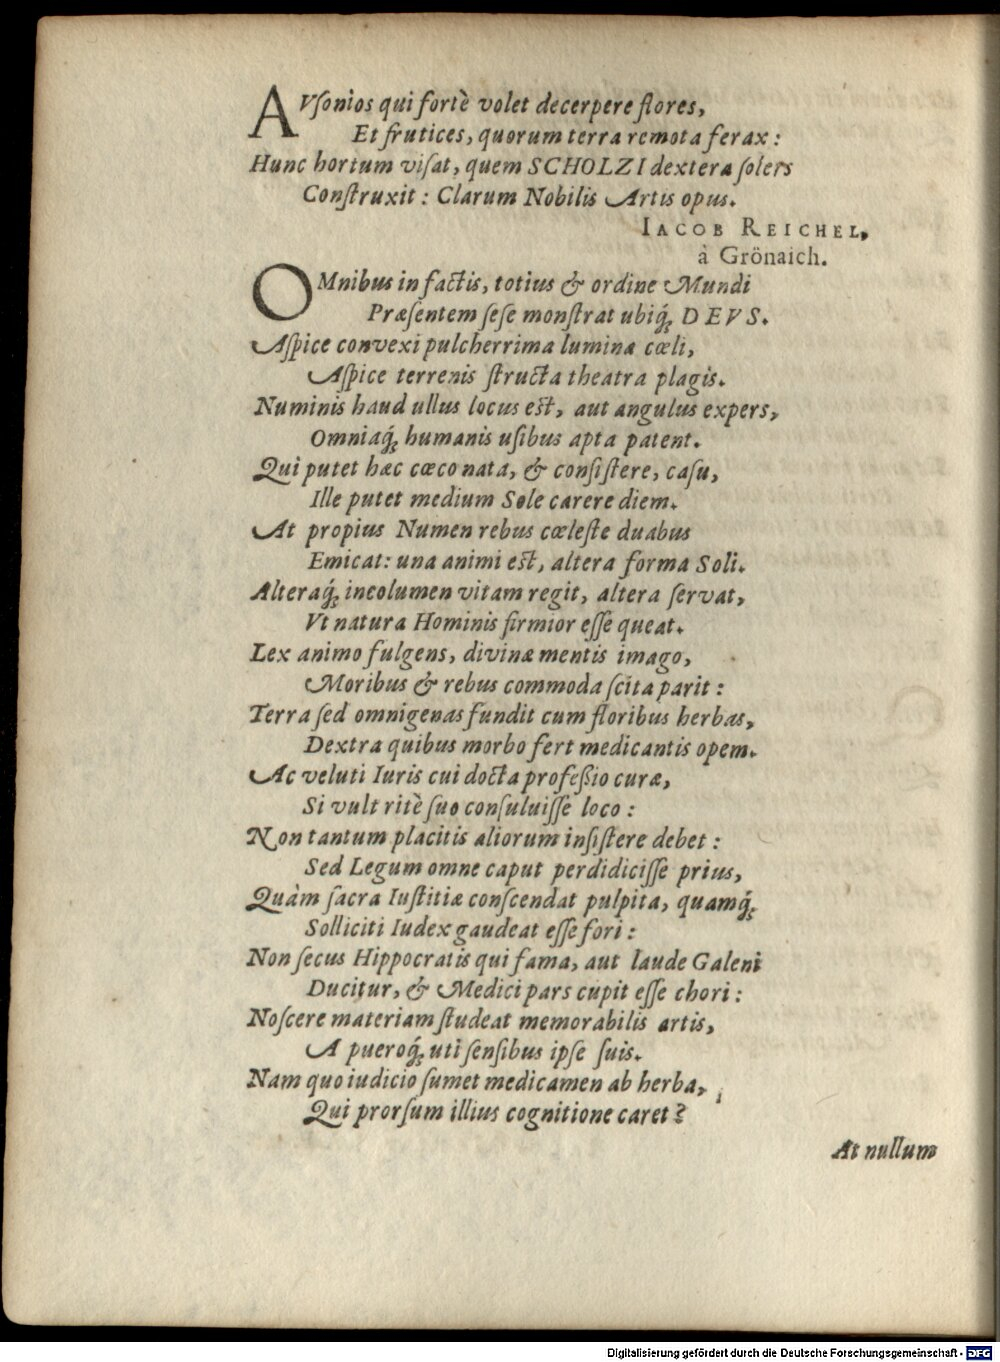 AVſonios qui fortè volet decerpere flores,
Et frutices, quorum terra remota ferax:
Hunc hortum viſat, quem SCHOLZI dextera ſolers
Conſtruxit: Clarum Nobilis Artis opus.
IACOB REICHEL,
à Grönaich.
OMnibus in factis, totius & ordine Mundi
Præſentem ſeſe monſtrat ubiq́; DEVS.
Aſpice convexi pulcherrima lumina cœli,
Aſpice terrenis ſtructa theatra plagis.
Numinis haud ullus locus est, aut angulus expers,
Omniaq́; humanis uſibus apta patent.
Qui putet hæc cœco nata, & conſiſtere, caſu,
Ille putet medium Sole carere diem.
At propius Numen rebus cœleſte duabus
Emicat: una animi est, altera forma Soli.
Alteraq́; incolumen vitam regit, altera ſervat,
Vt natura Hominis firmior eſſe queat.
Lex animo fulgens, divinæ mentis imago,
Moribus & rebus commoda ſcita parit:
Terra ſed omnigenas fundit cum floribus herbas,
Dextra quibus morbo fert medicantis opem.
Ac veluti Iuris cui docta profeßio curæ,
Si vult ritè ſuo conſuluiſſe loco:
Non tantum placitis aliorum inſiſtere debet:
Sed Legum omne caput perdidiciſſe prius,
Quàm ſacra Iuſtitiæ conſcendat pulpita, quamq́;
Solliciti Iudex gaudeat eſſe fori:
Non ſecus Hippocratis qui fama, aut laude Galeni
Ducitur, & Medici pars cupit eſſe chori:
Noſcere materiam ſtudeat memorabilis artis,
A pueroq́; uti ſenſibus ipſe ſuis.
Nam quo iudicio ſumet medicamen ab herba,
Qui prorſum illius cognitione caret?
At nullum
Digitalisierung gefördert durch die Deutsche Forschungsgemeinschaft - DFG